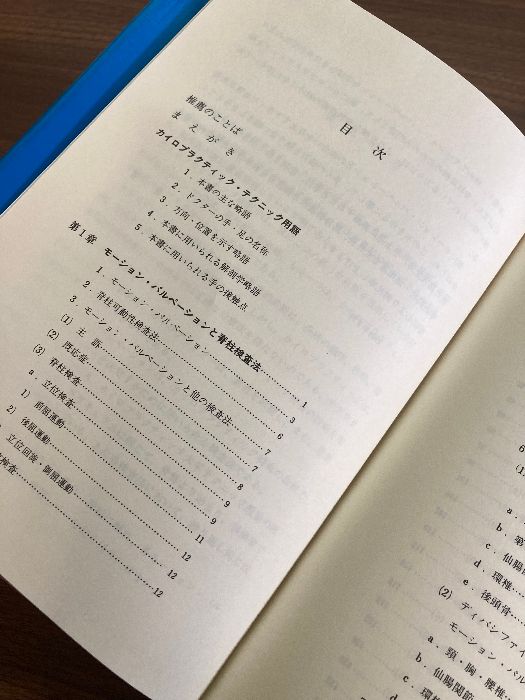 目次
推薦のことば
まえがき
カイロプラクティック・テクニック用語
1. 本書の主な略語
2. ドクターの手・足の名称
3. 方向・位置を示す略語
4. 本書に用いられる解剖学略語
5. 本書に用いられる手の接触点
第1章 モーション・パルペーションと脊柱検査法……1
1. モーション・パルペーション……3
2. 脊柱可動性検査法……6
3. モーション・パルペーションと他の検査法……7
(1) 主訴……7
(2) 既応症……8
(3) 脊柱検査……9
a. 立位検査……9
1) 前屈運動……11
2) 後屈運動……12
立位回旋・側屈運動……12
検査……12
6
(1
a.
b. 第
c. 仙腸関
d. 環椎…
e. 後頭骨…
(2) ディバシファイ
モーション・パル
a. 頸・胸・腰椎
b. 仙腸関節
c. 環椎
d